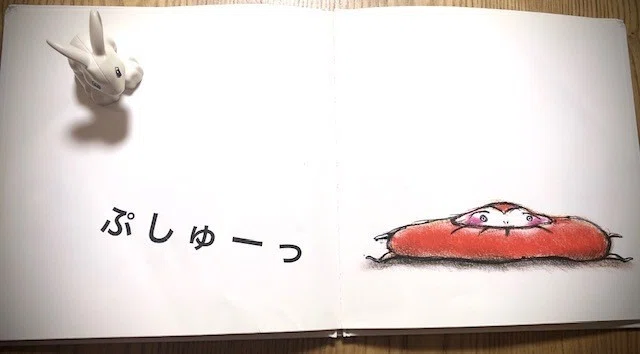 ぷしゅーっ